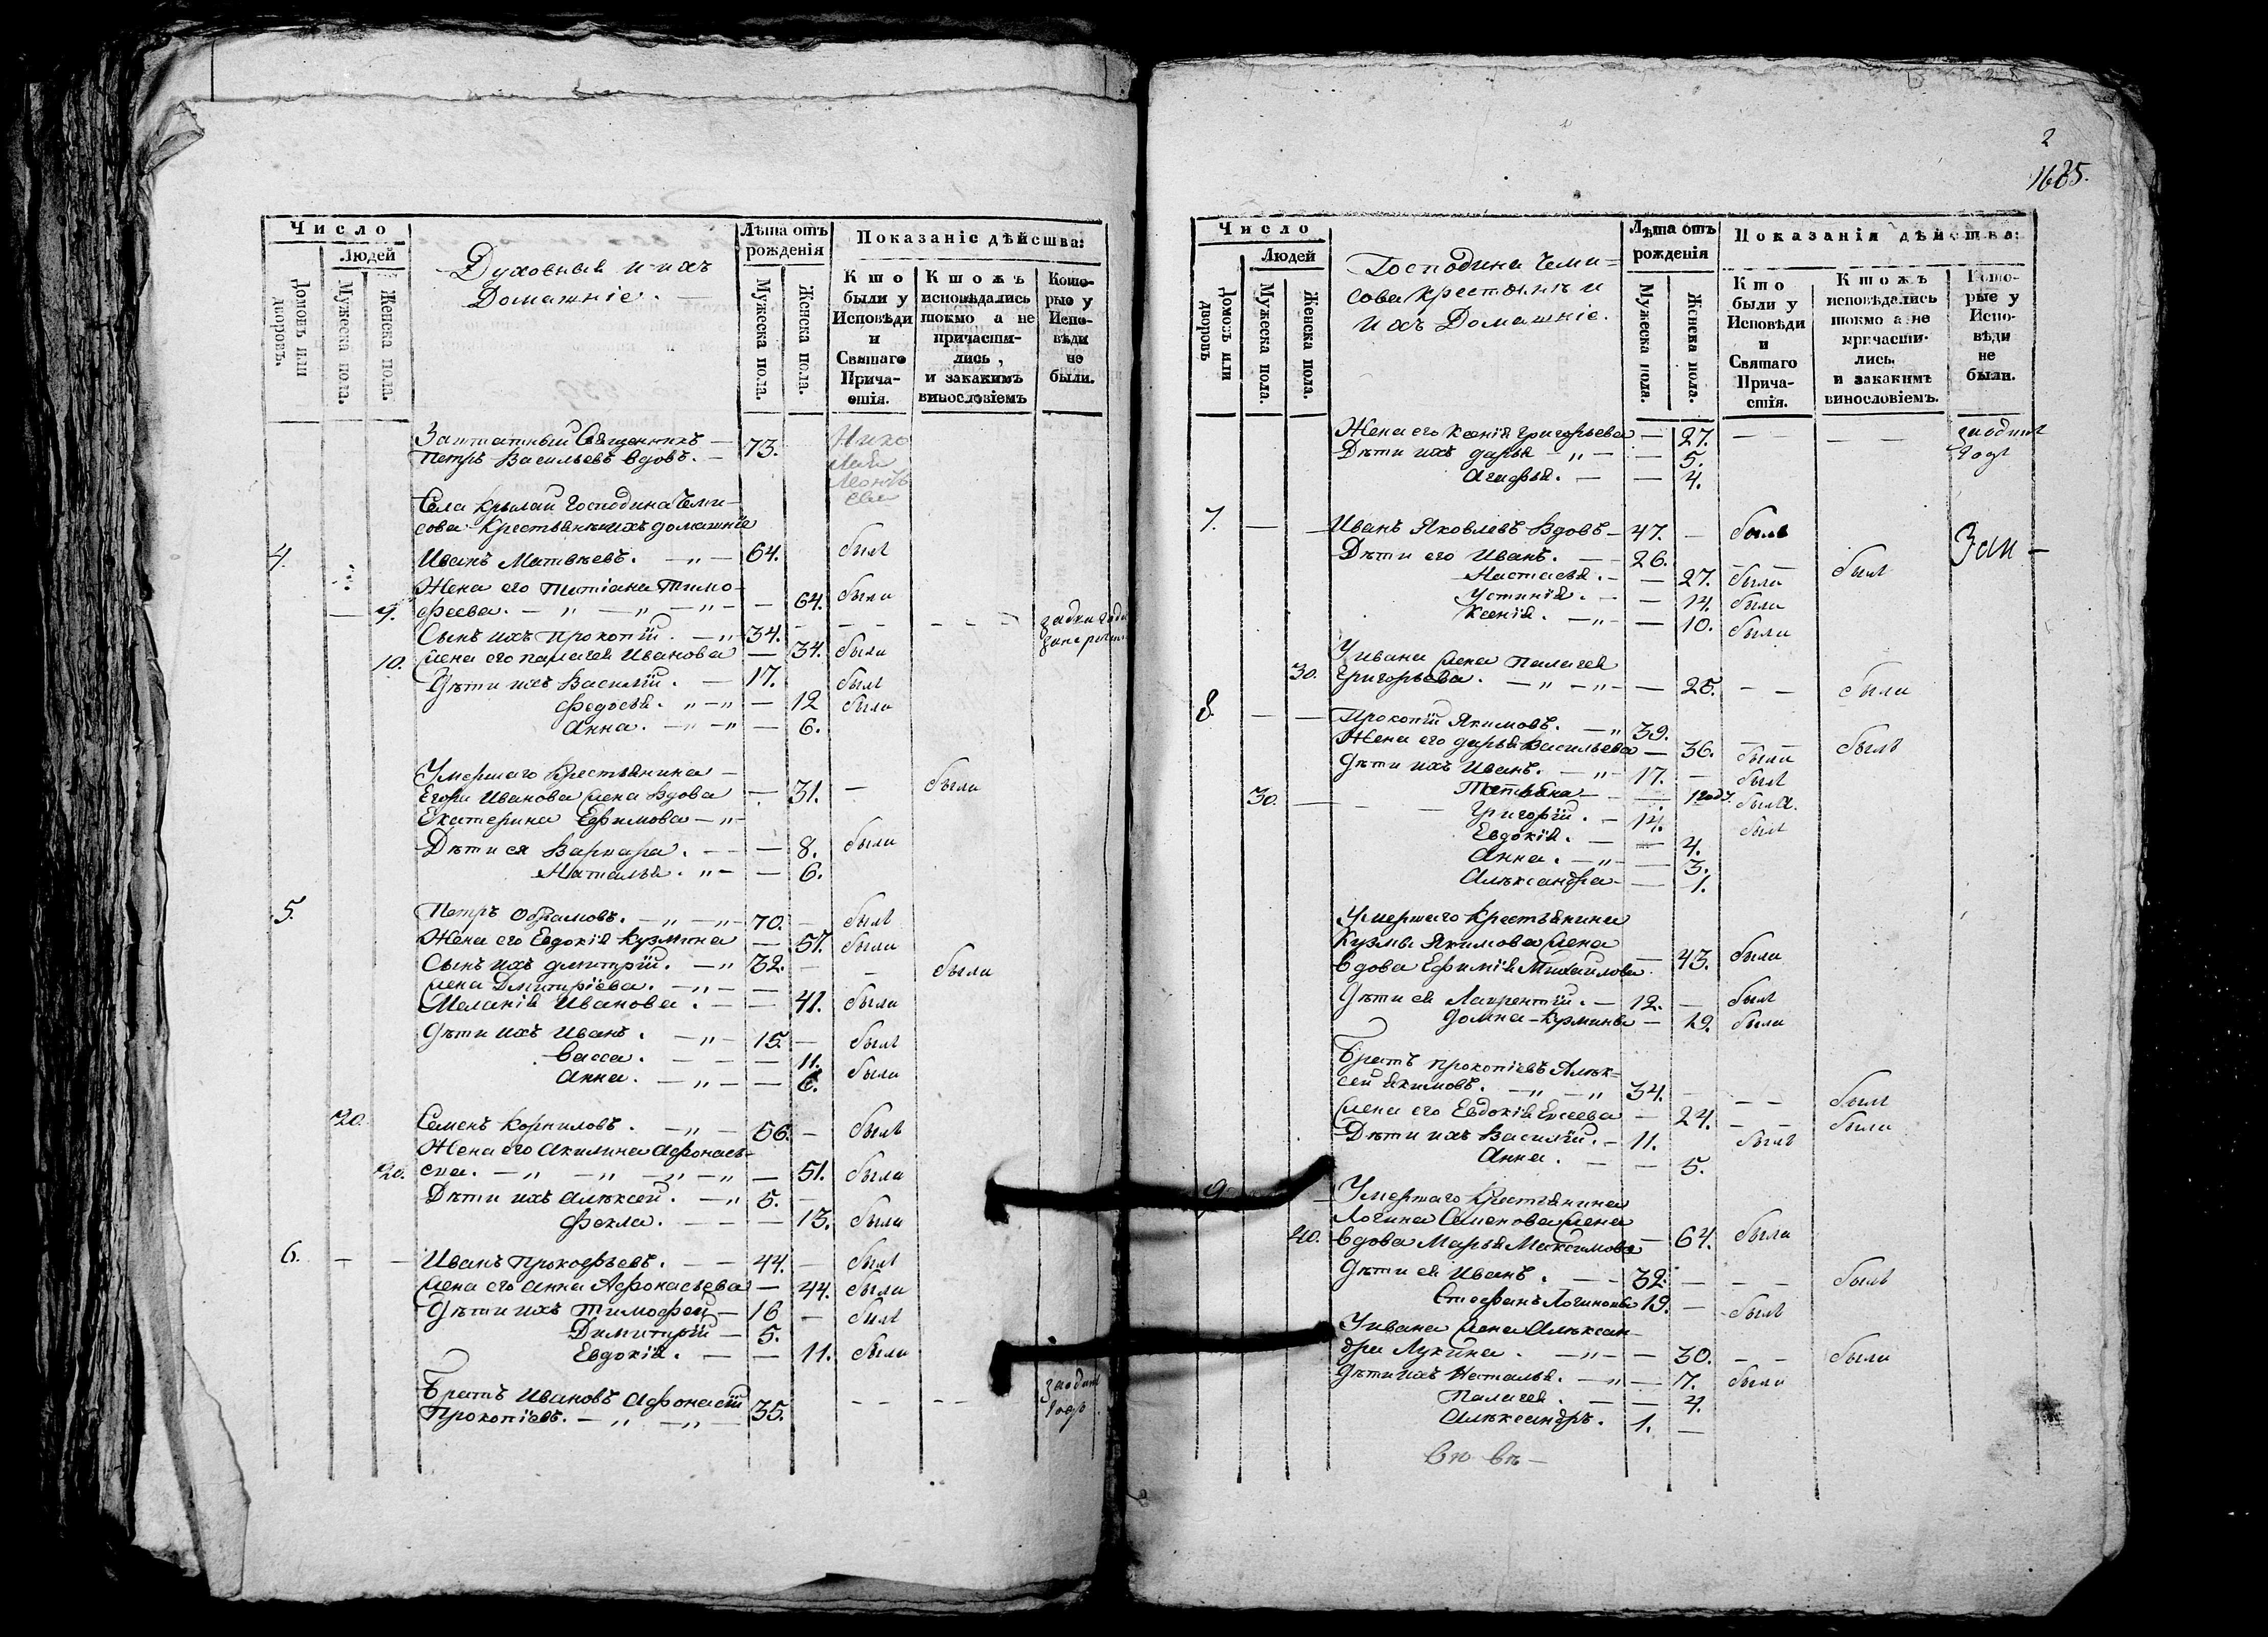 Число
Людей
Домовъ или дворовъ.
Мужеска пола.
Женска пола.
Духовныя и ихъ
Домашніе. —
Лѣта отъ рожденія
Мужеска пола.
Женска пола.
Показаніе дѣйства:
Кто были у Исповѣди и Святаго Причастія.
Ктожъ исповѣдались токмо а не причастились, и закакимъ винословіемъ
Которые у Исповѣди не были.
Заштатный Священникъ —
Петръ Васильевъ вдовъ. — 73.
Села Крылай Господина Чеми-
сова Крестьянъ и ихъ домашніе
4. Иванъ Матвѣевъ. — „ — 64. былъ
Жена его Татіана Тимо-
— 9. феева. — „ — „ — „ — 64. была
Сынъ ихъ Прокопій. — „ 34. — — — — —
10. Жена его Палагея Иванова — 34. была
Дѣти ихъ Василій. — 17. былъ
Федосья. „ — „ — 12 была
Анна. — „ — „ — 6.
Умершаго Крестьянина —
Егора Иванова Жена Вдова — 31. — была
Екатерина Ефимова — „ —
Дѣти ея Варвара. — — 8. была
Наталья. „ — — 6.
5. Петръ Обрамовъ. — „ — „ — 70. — былъ
Жена его Евдокія Кузмина — 57. была
Сынъ ихъ Дмитрій. — „ 32. — — была
Жена Дмитріева. — „ — —
Меланія Иванова. — — 41. была
Дѣти ихъ Иванъ. — „ — 15. — былъ
Васса. — — — — 11.
Анна. — „ — — 6. была
20. Семенъ Корниловъ. — „ — 56. — былъ
Жена его Акилина Афонась-
20. ева. — „ — „ — „ — „ — 51. была
Дѣти ихъ Алѣксей. — „ 5. —
Фекла. — — — 13. была
6. — — Иванъ Прокофьевъ. — — 44. — былъ
Жена его Анна Афонасьева — 44. была
Дѣти ихъ Тимофей — 16 — былъ
Димитрій — 5.
Евдокія. — — 11. была
Братъ Ивановъ Афонасій заодинъ
Прокопіевъ. — „ — „ — 35. — — — — годъ
2
1685.
Число
Людей
Домовъ или дворовъ
Мужеска пола.
Женска пола.
Господина Чеми-
сова крестьянъ и
ихъ Домашніе.
Лѣта отъ рожденія
Мужеска пола.
Женска пола.
Показанія дѣйства:
Кто были у Исповѣди и Святаго Причастія.
Ктожъ исповѣдались токмо а не причастились. и закакимъ винословіемъ.
Которые у Исповѣди не были.
Жена его Ксенія Григорьева — 27. — — — — заодинъ
Дѣти ихъ Дарья — „ — — 5. годъ
Агафья. — — 4.
7. — — Иванъ Яковлевъ Вдовъ — 47. — былъ
Дѣти его Иванъ. — — 26. — — былъ
Настасья. — — 27. была
Устинія. — — 14. была
Ксенія. — „ — — 10. была
У Ивана Жена Палагея
30. Григорьева. — „ — „ — — 25. — — была
8. — — Прокопій Якимовъ. — „ 39. — — былъ
Жена его Дарья Васильева — 36. была
Дѣти ихъ Иванъ. — „ — 17. — былъ
30. — Татьяна — — была.
Григорій. — 14. былъ
Евдокія. — — 4.
Анна. — „ — — 3.
Алѣксандра — — 1.
Умершаго Крестьянина
Кузмы Якимова Жена
вдова Ефимія Михайлова — 43. была
Дѣти ея Лаврентій. — 12. — былъ
Домна Кузмина — 19. была
Братъ Прокопіевъ Алѣк-
сей Якимовъ. — „ — „ 34. — — — былъ
Жена его Евдокія — 24. — — была
Дѣти ихъ Василій. — 11. былъ
Анна. — — 5.
9. — Умершаго Крестьянина
Логина Семенова Жена
40. вдова Марья Максимова — 64. была
Дѣти ея Иванъ. — — 32. — — — былъ
Стефанъ Логиновы 19. — былъ
У Ивана Жена Алѣксан-
дра Лукина. — „ — — 30. — — была
Дѣти ихъ Наталья. — „ — 7. была
Палагея. — — 4.
Алѣксандръ. 1. —